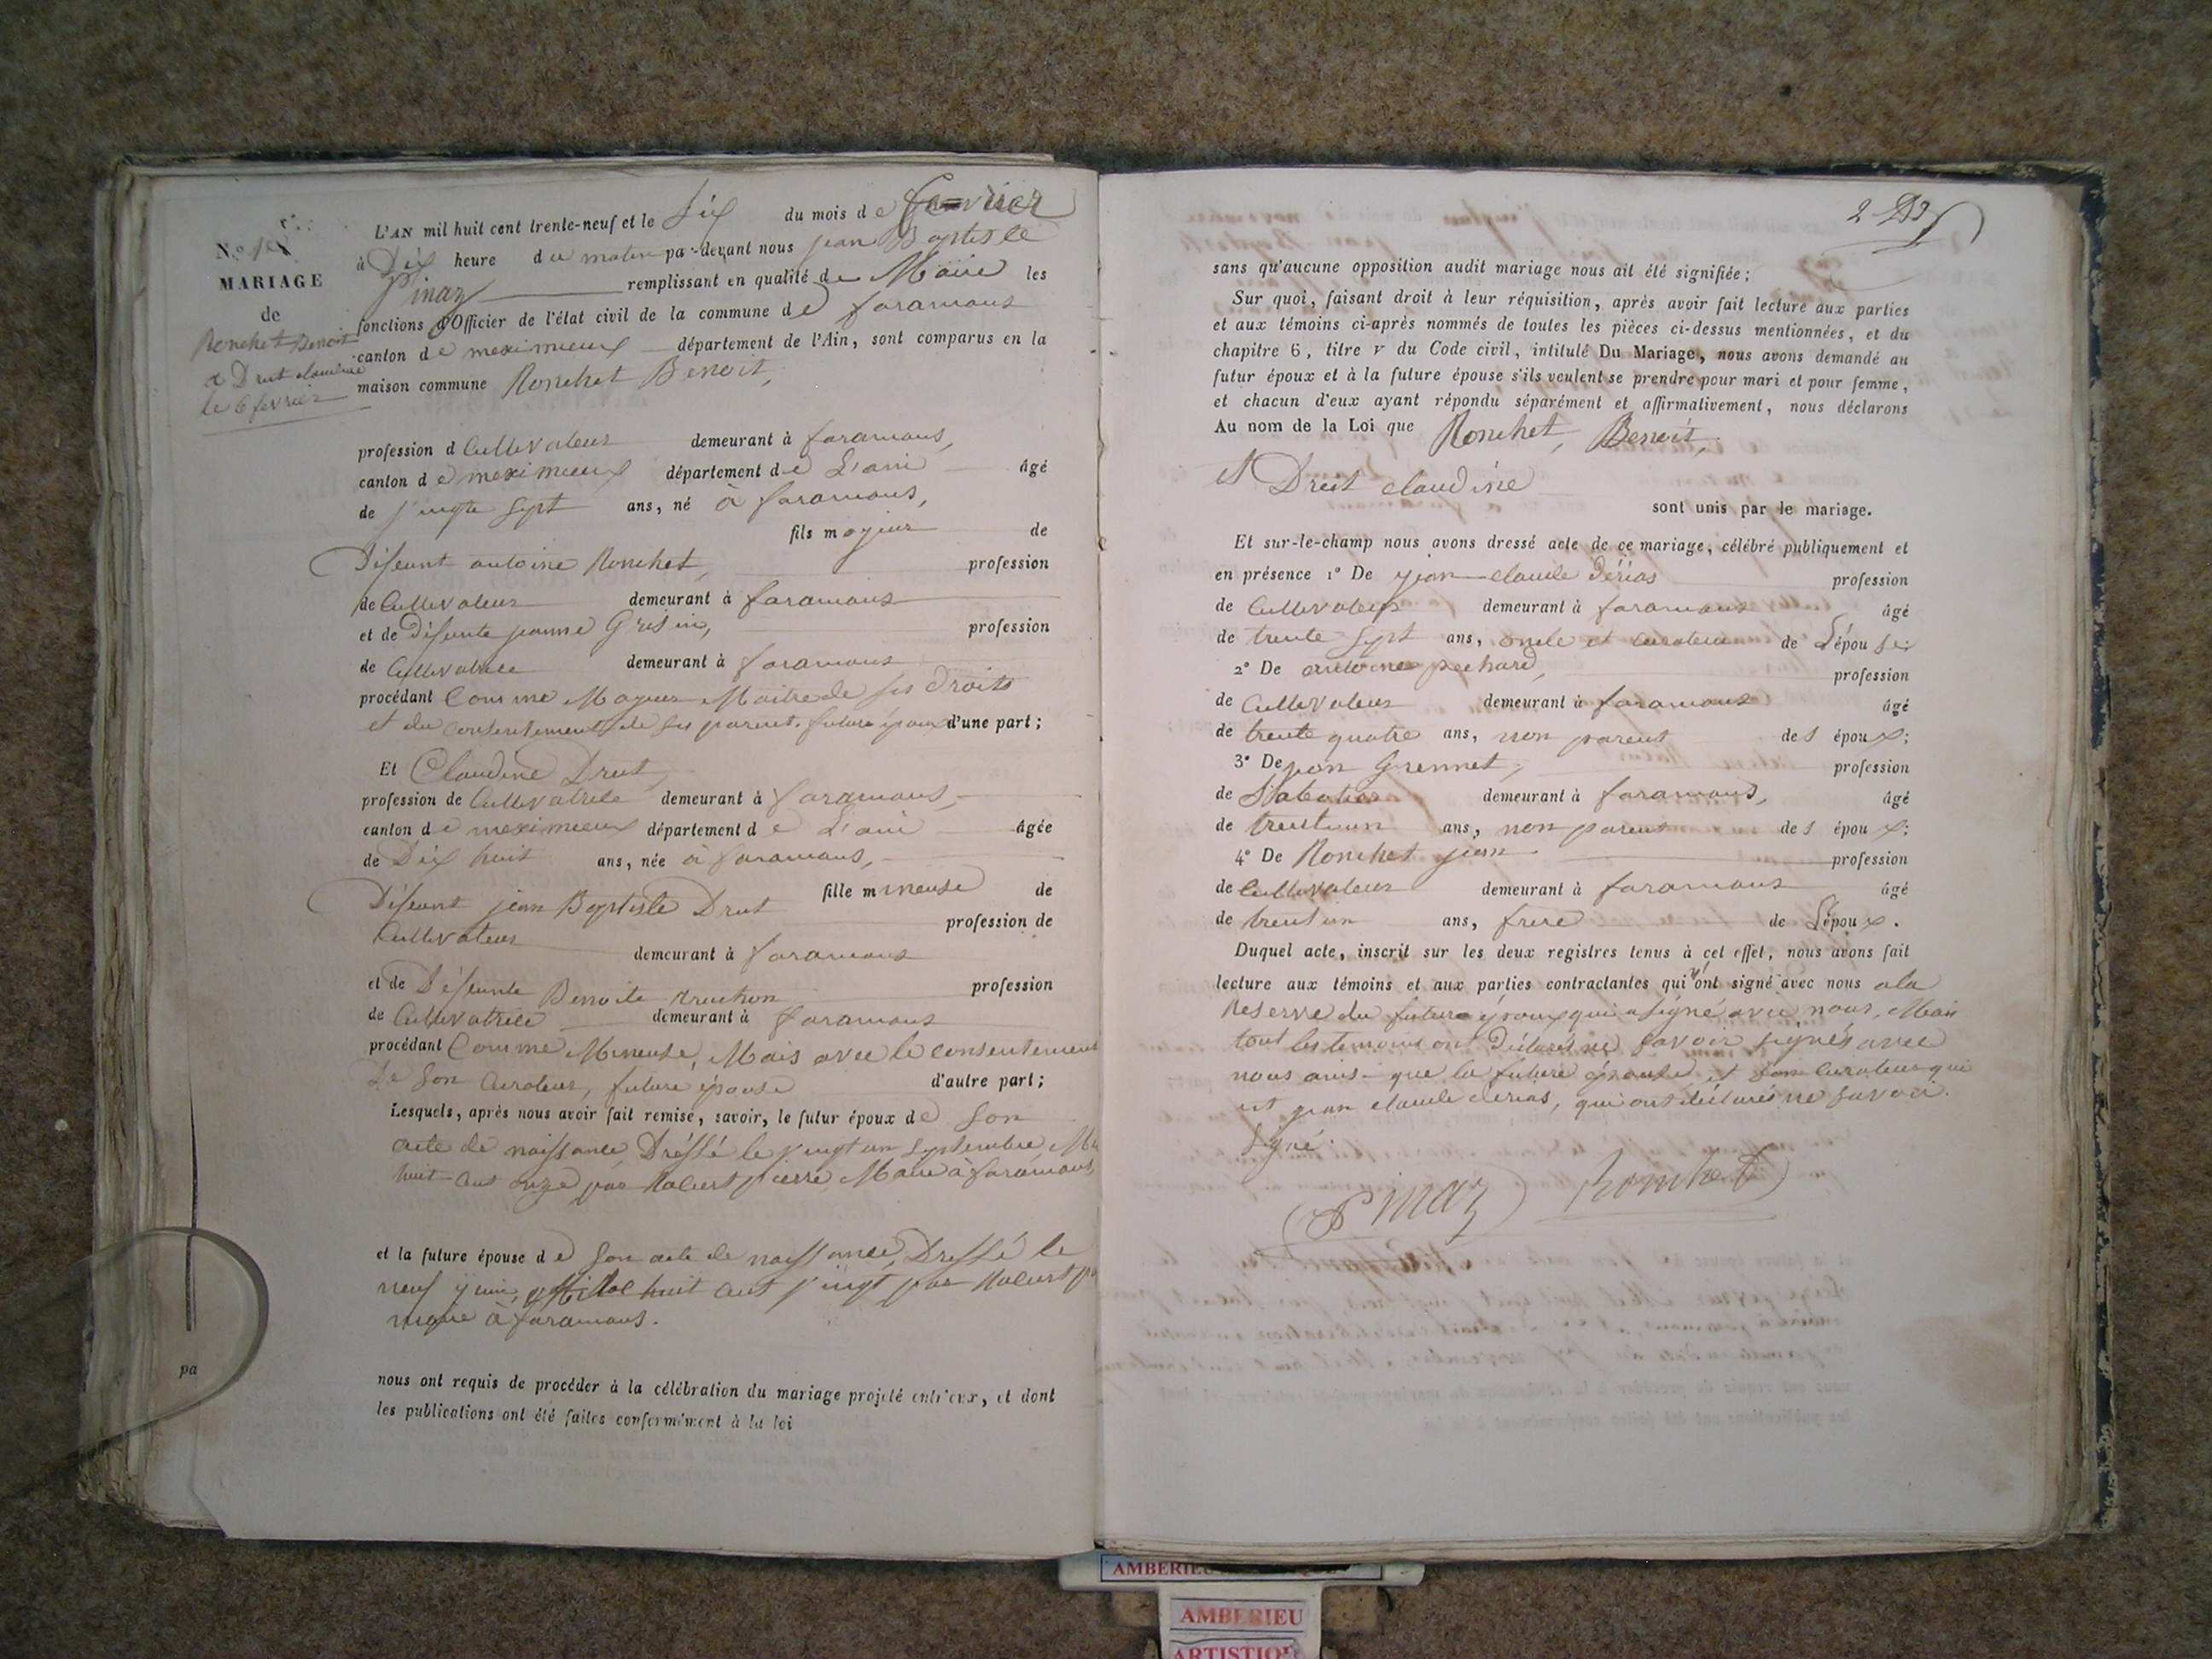 N.o
MARIAGE
de
Ronchet Benoit
et Drut claudine
le 6 fevrier
L'AN mil huit cent trente-neuf et le Six du mois de fevrier
à Dix heure du matin par-devant nous jean Baptiste
Pinaz remplissant en qualité de Maire les
fonctions d'Officier de l'état civil de la commune de faramans
canton de meximieux département de l'Ain, sont comparus en la
maison commune Ronchet Benoit,
profession d Cultivateur demeurant à faramans,
canton de meximieux département de L'ain âgé
de vingte sept ans, né à faramans,
fils majeur de
Défeunt antoine Ronchet, profession
de Cultivateur demeurant à faramans
et de Défeunte jeanne Grosin, profession
de Cultivatrice demeurant à faramans
procédant Comme Majeur Maitre de ses Droits
et du consentement de ses parent. future époux d'une part;
Et Claudine Drut,
profession de Cultivatrice demeurant à faramans,
canton de meximieux département de L'ain âgée
de Dix huit ans, née à faramans,
fille mineuse de
Défeunt jean Baptiste Drut profession de
Cultivateur demeurant à faramans
et de Défeunte Benoite truchon profession
de Cultivatrice demeurant à faramans
procédant Comme Mineuse, Mais avec le consentement
de son Curateur, future épouse d'autre part;
Lesquels, après nous avoir fait remise, savoir, le futur époux de son
acte de naissance, Dréssé le vingt un septembre, Mil
huit-cent onze par Robert pierre Maire à faramans,
et la future épouse de son acte de naissance, Dressé le
neuf juin, Mil huit cent vingt par Robert
maire à faramans.
nous ont requis de procéder à la célébration du mariage projeté entr'eux, et dont
les publications ont été faites conformément à la loi
pa
2
sans qu'aucune opposition audit mariage nous ait été signifiée;
Sur quoi, faisant droit à leur réquisition, après avoir fait lecture aux parties
et aux témoins ci-après nommés de toutes les pièces ci-dessus mentionnées, et du
chapitre 6, titre v du Code civil, intitulé Du Mariage, nous avons demandé au
futur époux et à la future épouse s'ils veulent se prendre pour mari et pour femme,
et chacun d'eux ayant répondu séparément et affirmativement, nous déclarons
Au nom de la Loi que Ronchet, Benoit,
et Drut claudine
sont unis par le mariage.
Et sur-le-champ nous avons dressé acte de ce mariage, célébré publiquement et
en présence 1° De jean-claude Dérias profession
de Cultivateur demeurant à faramans âgé
de trente sept ans, oncle et curateur de L'épouse;
2° De antoine pechard, profession
de Cultivateur demeurant à faramans âgé
de trente quatre ans, non parent des époux;
3° De jean Grennet, profession
de Sabotier demeurant à faramans, âgé
de trentunn ans, non parent des époux;
4° De Ronchet jean profession
de Cultivateur demeurant à faramans âgé
de trentun ans, frere de L'époux.
Duquel acte, inscrit sur les deux registres tenus à cet effet, nous avons fait
lecture aux témoins et aux parties contractantes qui n'ont signé avec nous ala
Reserve du future époux qui a signé avec nous, Mais
tout les temoins ont Déclarés ne savoir signés avec
nous ainsi que la future épouse et son Curateur qui
est jean claude dérias, qui ont déclarés ne savoir.
Signé.
Pinaz Ronchet
AMBERIEU
ARTISTIQUE